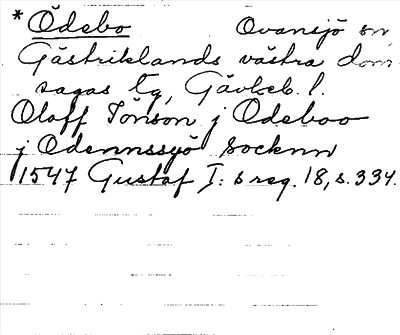 * Ödebo Ovansjö sn
Gästriklands västra dom
sagas tg, Gävleb. l.
Oloff Jönson j Odeboo
j Odennssjö Socknn
1547 Gustaf I: s reg. 18, s. 334.